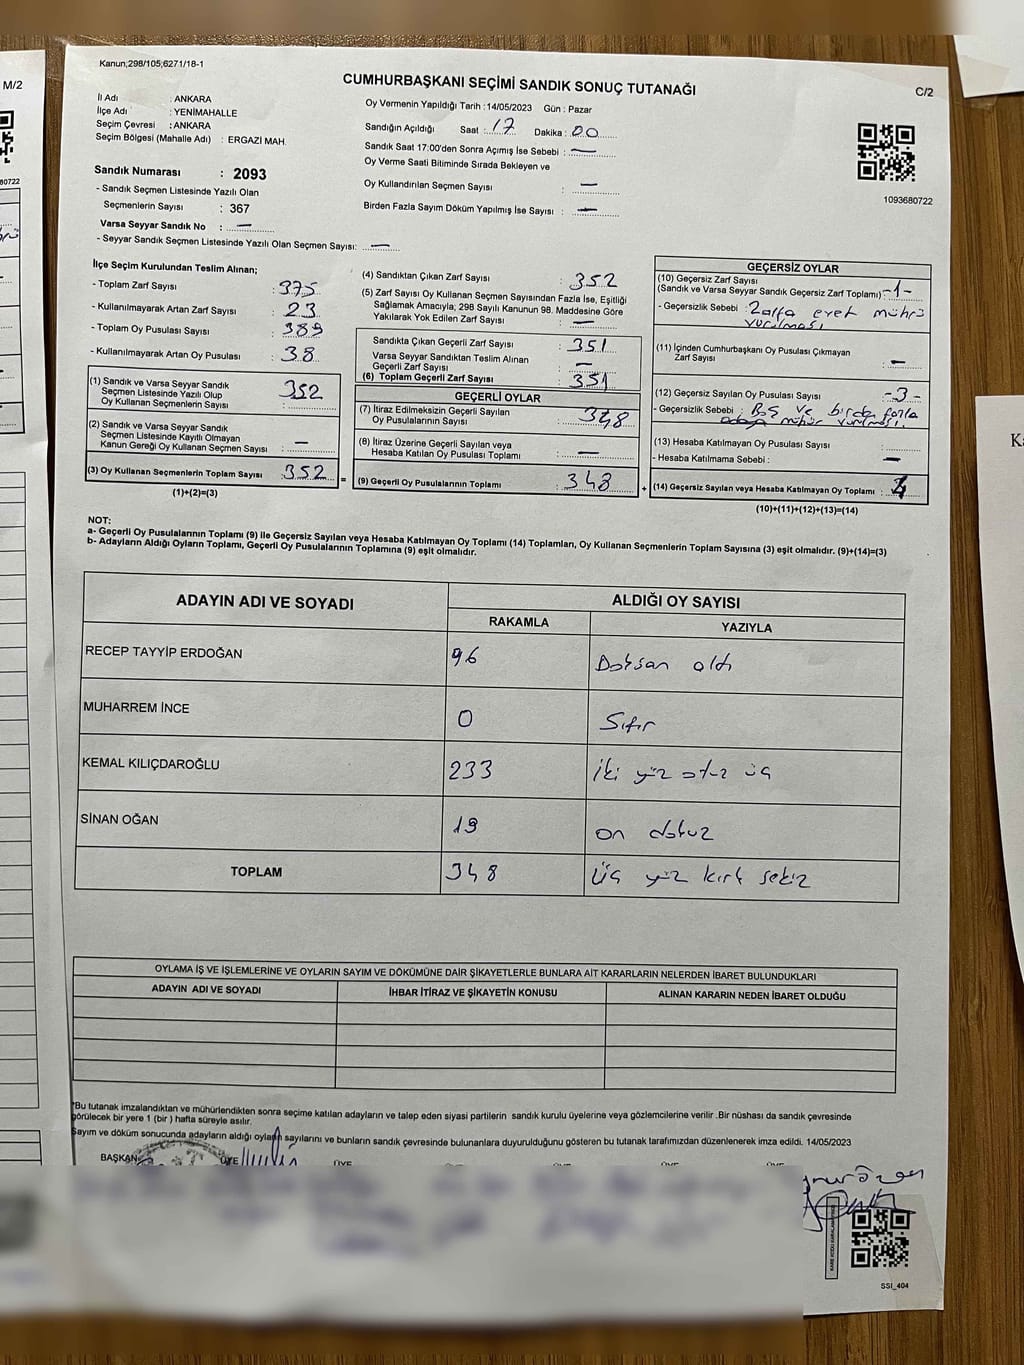 M/2
80722
Kanun;298/105;6271/18-1
CUMHURBAŞKANI SEÇİMİ SANDIK SONUÇ TUTANAĞI
C/2
İl Adı : ANKARA
İlçe Adı : YENİMAHALLE
Seçim Çevresi : ANKARA
Seçim Bölgesi (Mahalle Adı) : ERGAZİ MAH.
Oy Vermenin Yapıldığı Tarih : 14/05/2023 Gün : Pazar
Sandığın Açıldığı Saat : 17 Dakika : 00
Sandık Saat 17:00'den Sonra Açımış İse Sebebi : —
Oy Verme Saati Bitiminde Sırada Bekleyen ve
Oy Kullandırılan Seçmen Sayısı : —
Birden Fazla Sayım Döküm Yapılmış İse Sayısı : —
1093680722
Sandık Numarası : 2093
- Sandık Seçmen Listesinde Yazılı Olan
Seçmenlerin Sayısı : 367
Varsa Seyyar Sandık No : —
- Seyyar Sandık Seçmen Listesinde Yazılı Olan Seçmen Sayısı: —
İlçe Seçim Kurulundan Teslim Alınan;
- Toplam Zarf Sayısı : 375
- Kullanılmayarak Artan Zarf Sayısı : 23
- Toplam Oy Pusulası Sayısı : 389
- Kullanılmayarak Artan Oy Pusulası : 38
(1) Sandık ve Varsa Seyyar Sandık
Seçmen Listesinde Yazılı Olup
Oy Kullanan Seçmenlerin Sayısı : 352
(2) Sandık ve Varsa Seyyar Sandık
Seçmen Listesinde Kayıtlı Olmayan
Kanun Gereği Oy Kullanan Seçmen Sayısı : —
(3) Oy Kullanan Seçmenlerin Toplam Sayısı : 352 =
(1)+(2)=(3)
(4) Sandıktan Çıkan Zarf Sayısı : 352
(5) Zarf Sayısı Oy Kullanan Seçmen Sayısından Fazla İse, Eşitliği
Sağlamak Amacıyla, 298 Sayılı Kanunun 98. Maddesine Göre
Yakılarak Yok Edilen Zarf Sayısı : —
Sandıkta Çıkan Geçerli Zarf Sayısı : 351
Varsa Seyyar Sandıktan Teslim Alınan
Geçerli Zarf Sayısı : —
(6) Toplam Geçerli Zarf Sayısı : 351
GEÇERLİ OYLAR
(7) İtiraz Edilmeksizin Geçerli Sayılan
Oy Pusulalarının Sayısı : 348
(8) İtiraz Üzerine Geçerli Sayılan veya
Hesaba Katılan Oy Pusulası Toplamı : —
(9) Geçerli Oy Pusulalarının Toplamı : 348 +
GEÇERSİZ OYLAR
(10) Geçersiz Zarf Sayısı
(Sandık ve Varsa Seyyar Sandık Geçersiz Zarf Toplamı) : -1-
- Geçersizlik Sebebi : Zarfa evet mührü
vurulması
(11) İçinden Cumhurbaşkanı Oy Pusulası Çıkmayan
Zarf Sayısı : —
(12) Geçersiz Sayılan Oy Pusulası Sayısı : -3-
- Geçersizlik Sebebi : Boş ve birden fazla
adaya mühür vurulması.
(13) Hesaba Katılmayan Oy Pusulası Sayısı :
- Hesaba Katılmama Sebebi : —
(14) Geçersiz Sayılan veya Hesaba Katılmayan Oy Toplamı : 4
(10)+(11)+(12)+(13)=(14)
NOT:
a- Geçerli Oy Pusulalarının Toplamı (9) ile Geçersiz Sayılan veya Hesaba Katılmayan Oy Toplamı (14) Toplamları, Oy Kullanan Seçmenlerin Toplam Sayısına (3) eşit olmalıdır. (9)+(14)=(3)
b- Adayların Aldığı Oyların Toplamı, Geçerli Oy Pusulalarının Toplamına (9) eşit olmalıdır.
ADAYIN ADI VE SOYADI
ALDIĞI OY SAYISI
RAKAMLA YAZIYLA
RECEP TAYYİP ERDOĞAN 96 Doksan altı
MUHARREM İNCE 0 Sıfır
KEMAL KILIÇDAROĞLU 233 İki yüz otuz üç
SİNAN OĞAN 19 on dokuz
TOPLAM 348 Üç yüz kırk sekiz
OYLAMA İŞ VE İŞLEMLERİNE VE OYLARIN SAYIM VE DÖKÜMÜNE DAİR ŞİKAYETLERLE BUNLARA AİT KARARLARIN NELERDEN İBARET BULUNDUKLARI
ADAYIN ADI VE SOYADI İHBAR İTİRAZ VE ŞİKAYETİN KONUSU ALINAN KARARIN NEDEN İBARET OLDUĞU
*Bu tutanak imzalandıktan ve mühürlendikten sonra seçime katılan adayların ve talep eden siyasi partilerin sandık kurulu üyelerine veya gözlemcilerine verilir .Bir nüshası da sandık çevresinde
görülecek bir yere 1 (bir ) hafta süreyle asılır.
Sayım ve döküm sonucunda adayların aldığı oyların sayılarını ve bunların sandık çevresinde bulunanlara duyurulduğunu gösteren bu tutanak tarafımızdan düzenlenerek imza edildi. 14/05/2023
BAŞKAN ÜYE ÜYE
SSI_404